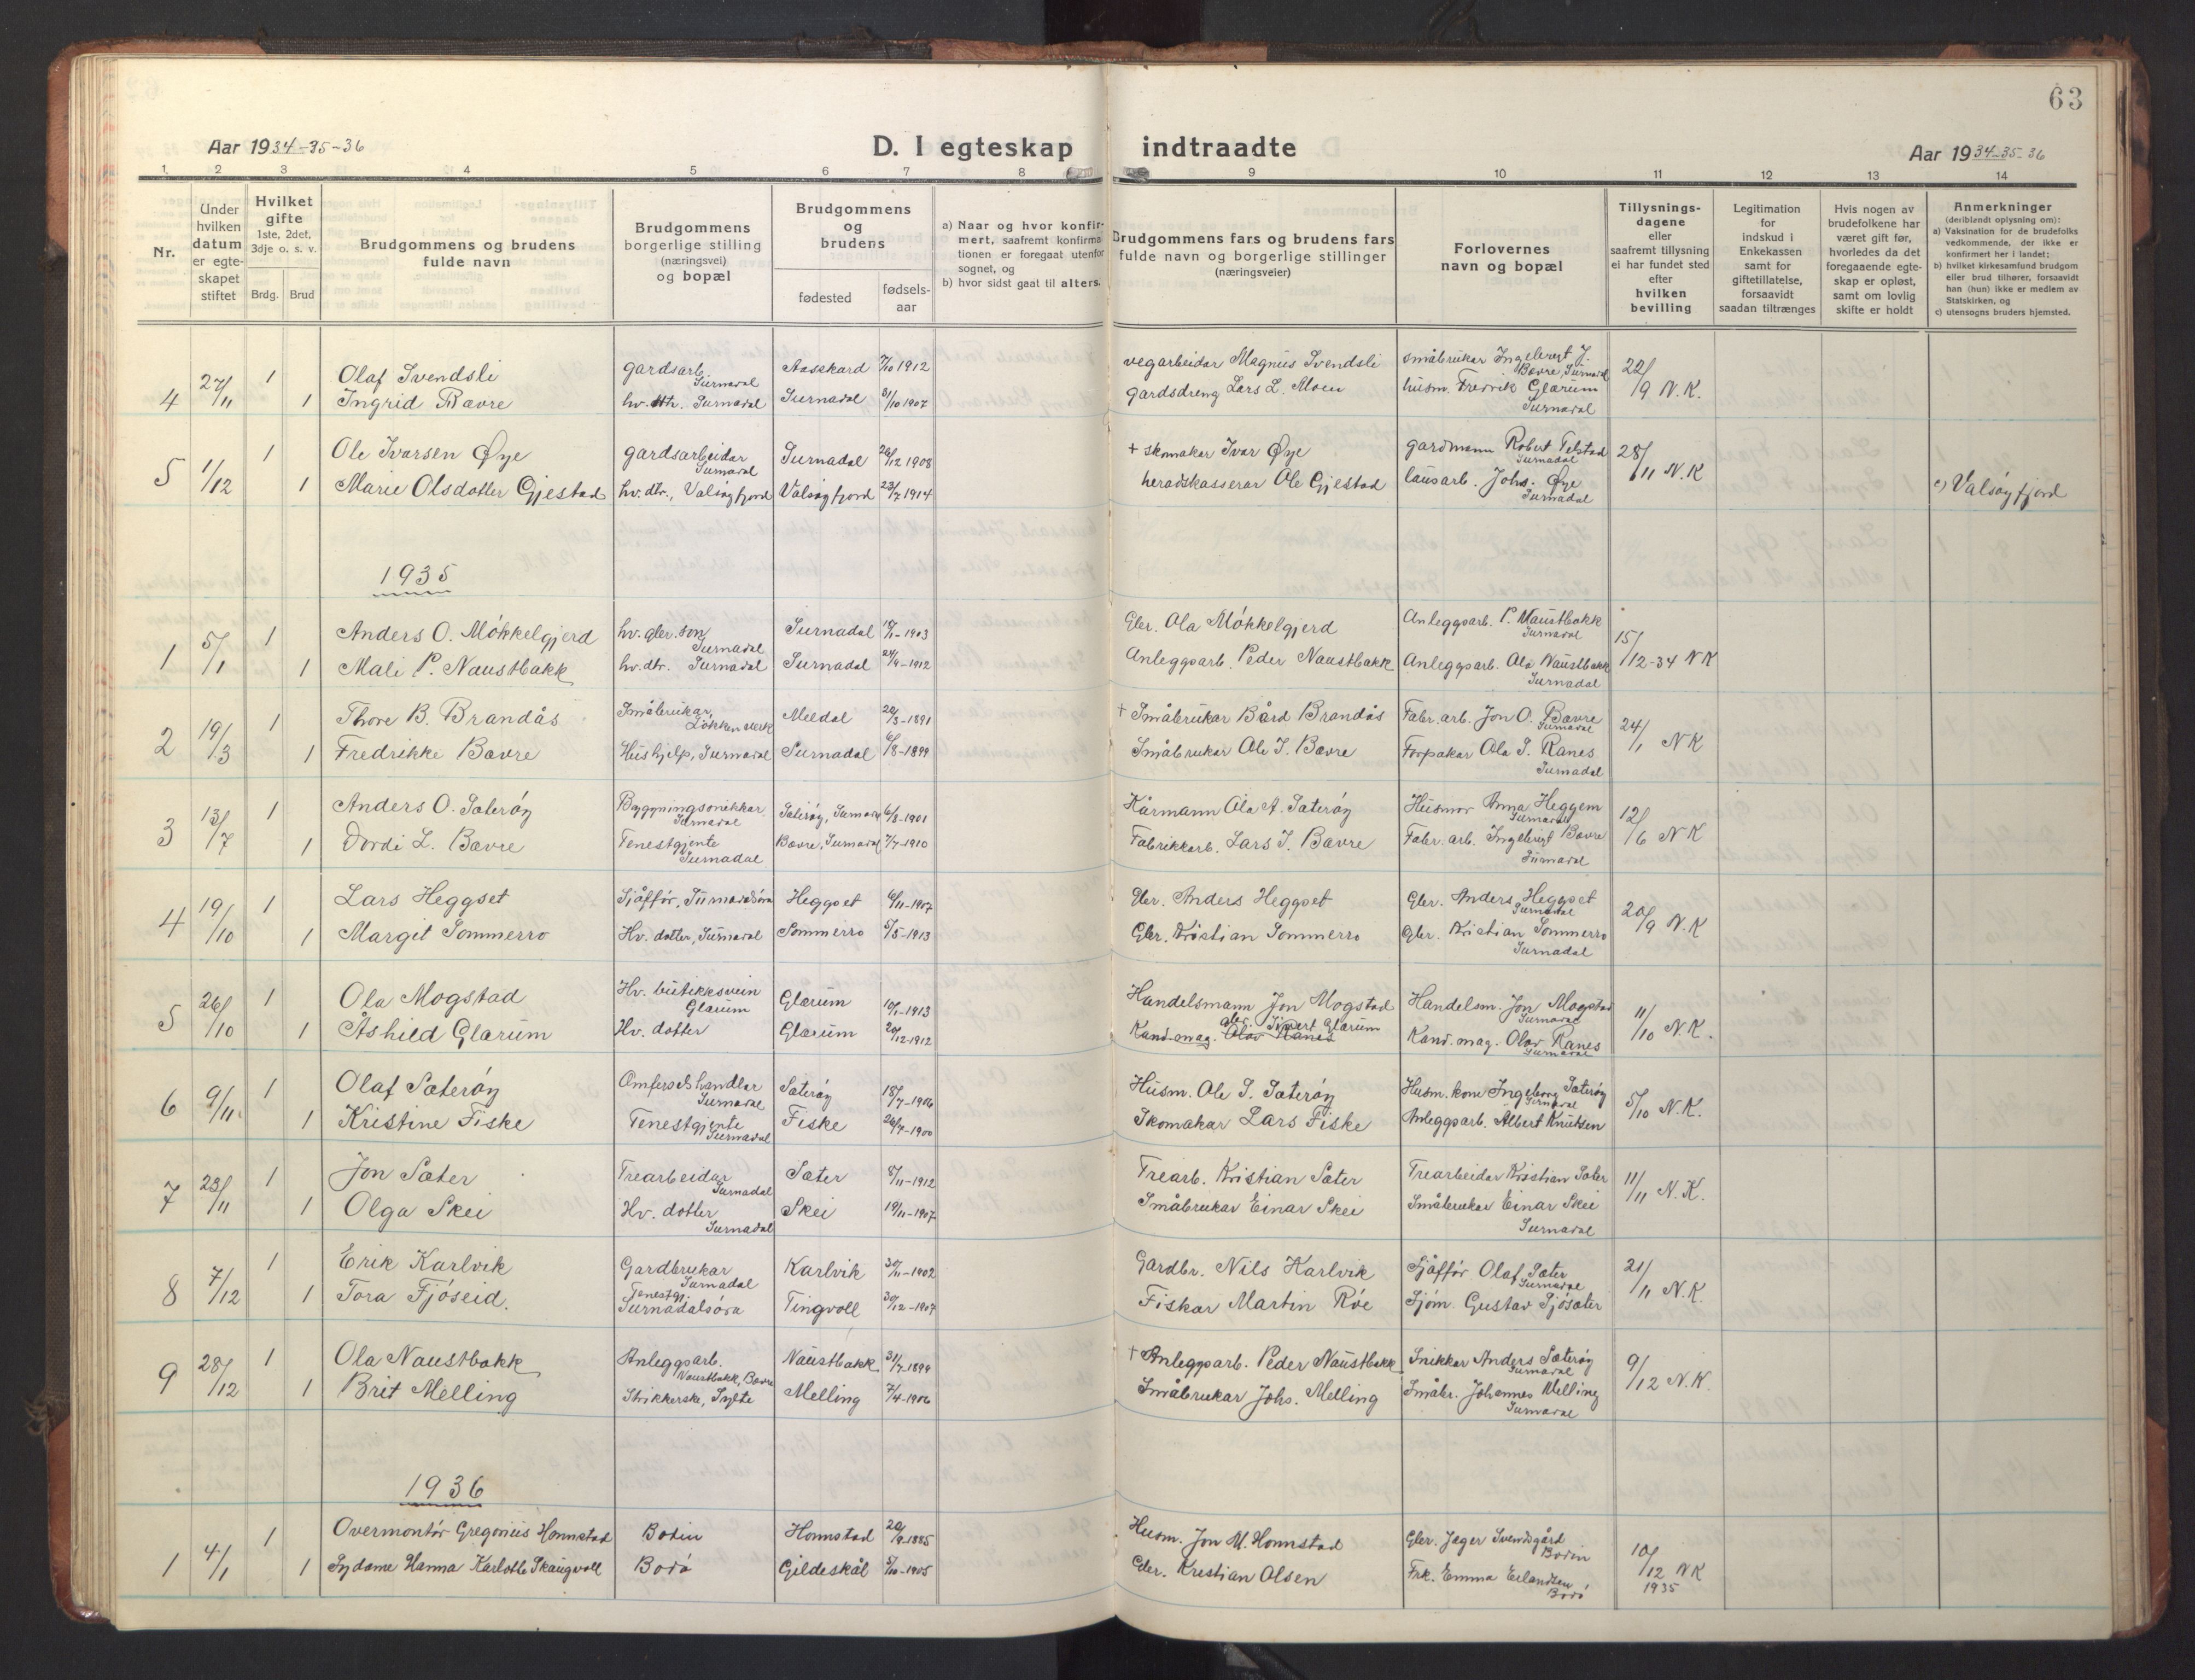 63
Aar 1934-35-36
D. I egteskap indtraadte
Aar 1934-35-36
1 2 3 4 5 6 7 8 9 10 11 12 13 14
Nr.
Under hvilken datum er egte-skapet stiftet
Hvilket gifte 1ste, 2det, 3dje o. s. v.
Brdg. Brud
Brudgommens og brudens fulde navn
Brudgommens borgerlige stilling (næringsvei) og bopæl
Brudgommens og brudens
fødested
fødsels-aar
a) Naar og hvor konfir-mert, saafremt konfirma-tionen er foregaat utenfor sognet, og
b) hvor sidst gaat til alters.
Brudgommens fars og brudens fars fulde navn og borgerlige stillinger (næringsveier)
Forlovernes navn og bopæl
Tillysnings-dagene eller saafremt tillysning ei har fundet sted efter hvilken bevilling
Legitimation for indskud i Enkekassen samt for giftetillatelse, forsaavidt saadan tiltrænges
Hvis nogen av brudefolkene har været gift før, hvorledes da det foregaaende egte-skap er opløst, samt om lovlig skifte er holdt
Anmerkninger (deriblandt oplysning om):
a) Vaksination for de brudefolks vedkommende, der ikke er konfirmert her i landet;
b) hvilket kirkesamfund brudgom eller brud tilhører, forsaavidt han (hun) ikke er medlem av Statskirken, og
c) utensogns bruders hjemsted.
4 27/11 1 Olaf Svendsli gardsarb. Surnadal Aasskard 7/10 1912 vegarbeidar Magnus Svendsli småbrukar Ingebrigt J. Bævre, Surnadal 22/9 N.K.
1 Ingrid Bævre hv. dtr. Surnadal Surnadal 31/10 1907 gardsdreng Lars L. Moen husm. Fredrik Glærum Surnadal
5 1/12 1 Ole Ivarsen Øye gardsarbeidar Surnadal Surnadal 26/12 1908 + skomakar Ivar Øye gardmann Robert Telstad Surnadal 28/11 N.K
1 Marie Olsdotter Gjestad hv. dtr., Valsøyfjord Valsøyfjord 23/7 1914 heradskasserar Ole Gjestad lausarb. Johs. Øye Surnadal c) Valsøyfjord
1935
1 5/1 1 Anders O. Møkkelgjerd hv. gbr. son Surnadal Surnadal 1903 Gbr. Ola Møkkelgjerd Anleggsarb. P. Naustbakk Surnadal 15/12-34 N K
1 Mali P. Naustbakk hv. dtr. Surnadal Surnadal 24/9-1912 Anleggsarb. Peder Naustbakk Anleggsarb. Ola Naustbakk Surnadal
2 19/3 1 Thore B. Brandås Småbrukar, Løkken verk Meldal 20/3-1891 + Småbrukar Bård Brandås Fabr. arb. Jon O. Bævre Surnadal 24/1 N K
1 Fredrikke Bævre Hushjelp, Surnadal Surnadal 6/8-1899 Småbrukar Ole J. Bævre Forpakar Ola J. Ranes Surnadal
3 13/7 1 Anders O. Sæterøy Bygningssnikkar Surnadal Sæterøy, Surnadal 6/8-1901 Kårmann Ola A. Sæterøy Husmor Anna Heggem Surnadal 12/6 N K
1 Dordi L. Bævre Tenestgjente Surnadal Bævre, Surnadal 7/7-1910 Fabrikkarb. Lars J. Bævre Fabr. arb. Ingebrigt Bævre Surnadal
4 19/10 1 Lars Heggset Sjåffør, Surnadalsøra Heggset 6/11-1907 Gbr. Anders Heggset Gbr. Anders Heggset Surnadal 20/9 N.K
1 Margit Sommerro Hv. dotter, Surnadal Sommerro 5/5-1913 Gbr. Kristian Sommerro Gbr. Kristian Sommerro Surnadal
5 26/10 1 Ola Mogstad Hv. butikksvein Glærum Glærum 10/1-1913 Handelsmann Jon Mogstad Handelsm. Jon Mogstad Surnadal 11/10 N.K.
1 Åshild Glærum Hv. dotter Glærum 20/12-1912 Kand. mag. Olav Ranes gbr. Sivert Glærum Kand. mag. Olav Ranes Surnadal
6 9/11 1 Olaf Sæterøy Omførselshandlar Surnadal Sæterøy 18/7-1906 Husm. Ole J. Sæterøy Husm. kone Ingeborg Sæterøy Surnadal 5/10 N.K.
1 Kristine Fiske Tenestgjente Surnadal Fiske 26/7-1900 Skomakar Lars Fiske Anleggsarb. Albert Knutsen
7 23/11 1 Jon Sæter Trearbeidar Surnadal Sæter 8/11-1912 Trearb. Kristian Sæter Trearbeidar Kristian Sæter 11/11 N.K.
1 Olga Skei Hv. dotter Surnadal Skei 19/11-1907 Småbrukar Einar Skei Småbrukar Einar Skei Surnadal
8 7/12 1 Erik Karlvik Gardbrukar Surnadal Karlvik 30/11-1902 Gardbr. Nils Karlvik Sjåffør Olaf Sæter Surnadal 21/11 N.K.
1 Tora Fjøseid. Tenestgj. Surnadalsøra Tingvoll 30/12-1907 Fiskar Martin Røe Sjøm. Gustav Sjøsæter
9 28/12 1 Ola Naustbakk Anleggsarb. Naustbakk, Bævre Naustbakk 31/7-1899 + Anleggsarb. Peder Naustbakk Snikkar Anders Sæterøy Surnadal 9/12 N.K.
1 Brit Melling Strikkerske, Sylte Melling 7/4-1906 Småbrukar Johs. Melling Småbr. Johannes Melling Surnadal
1936
1 4/1 1 Overmontør Gregorius Honnstad Bodin Honnstad 20/9-1885 Husm. Jon M. Honnstad Gbr. Jager Svendsgård Bodin 10/12 NK 1935
1 Sydame Hanna Karlotte Skaugvoll Bodø Gildeskål 5/10-1905 Gbr. Kristian Olsen Frk. Emma Erlandsen Bodø